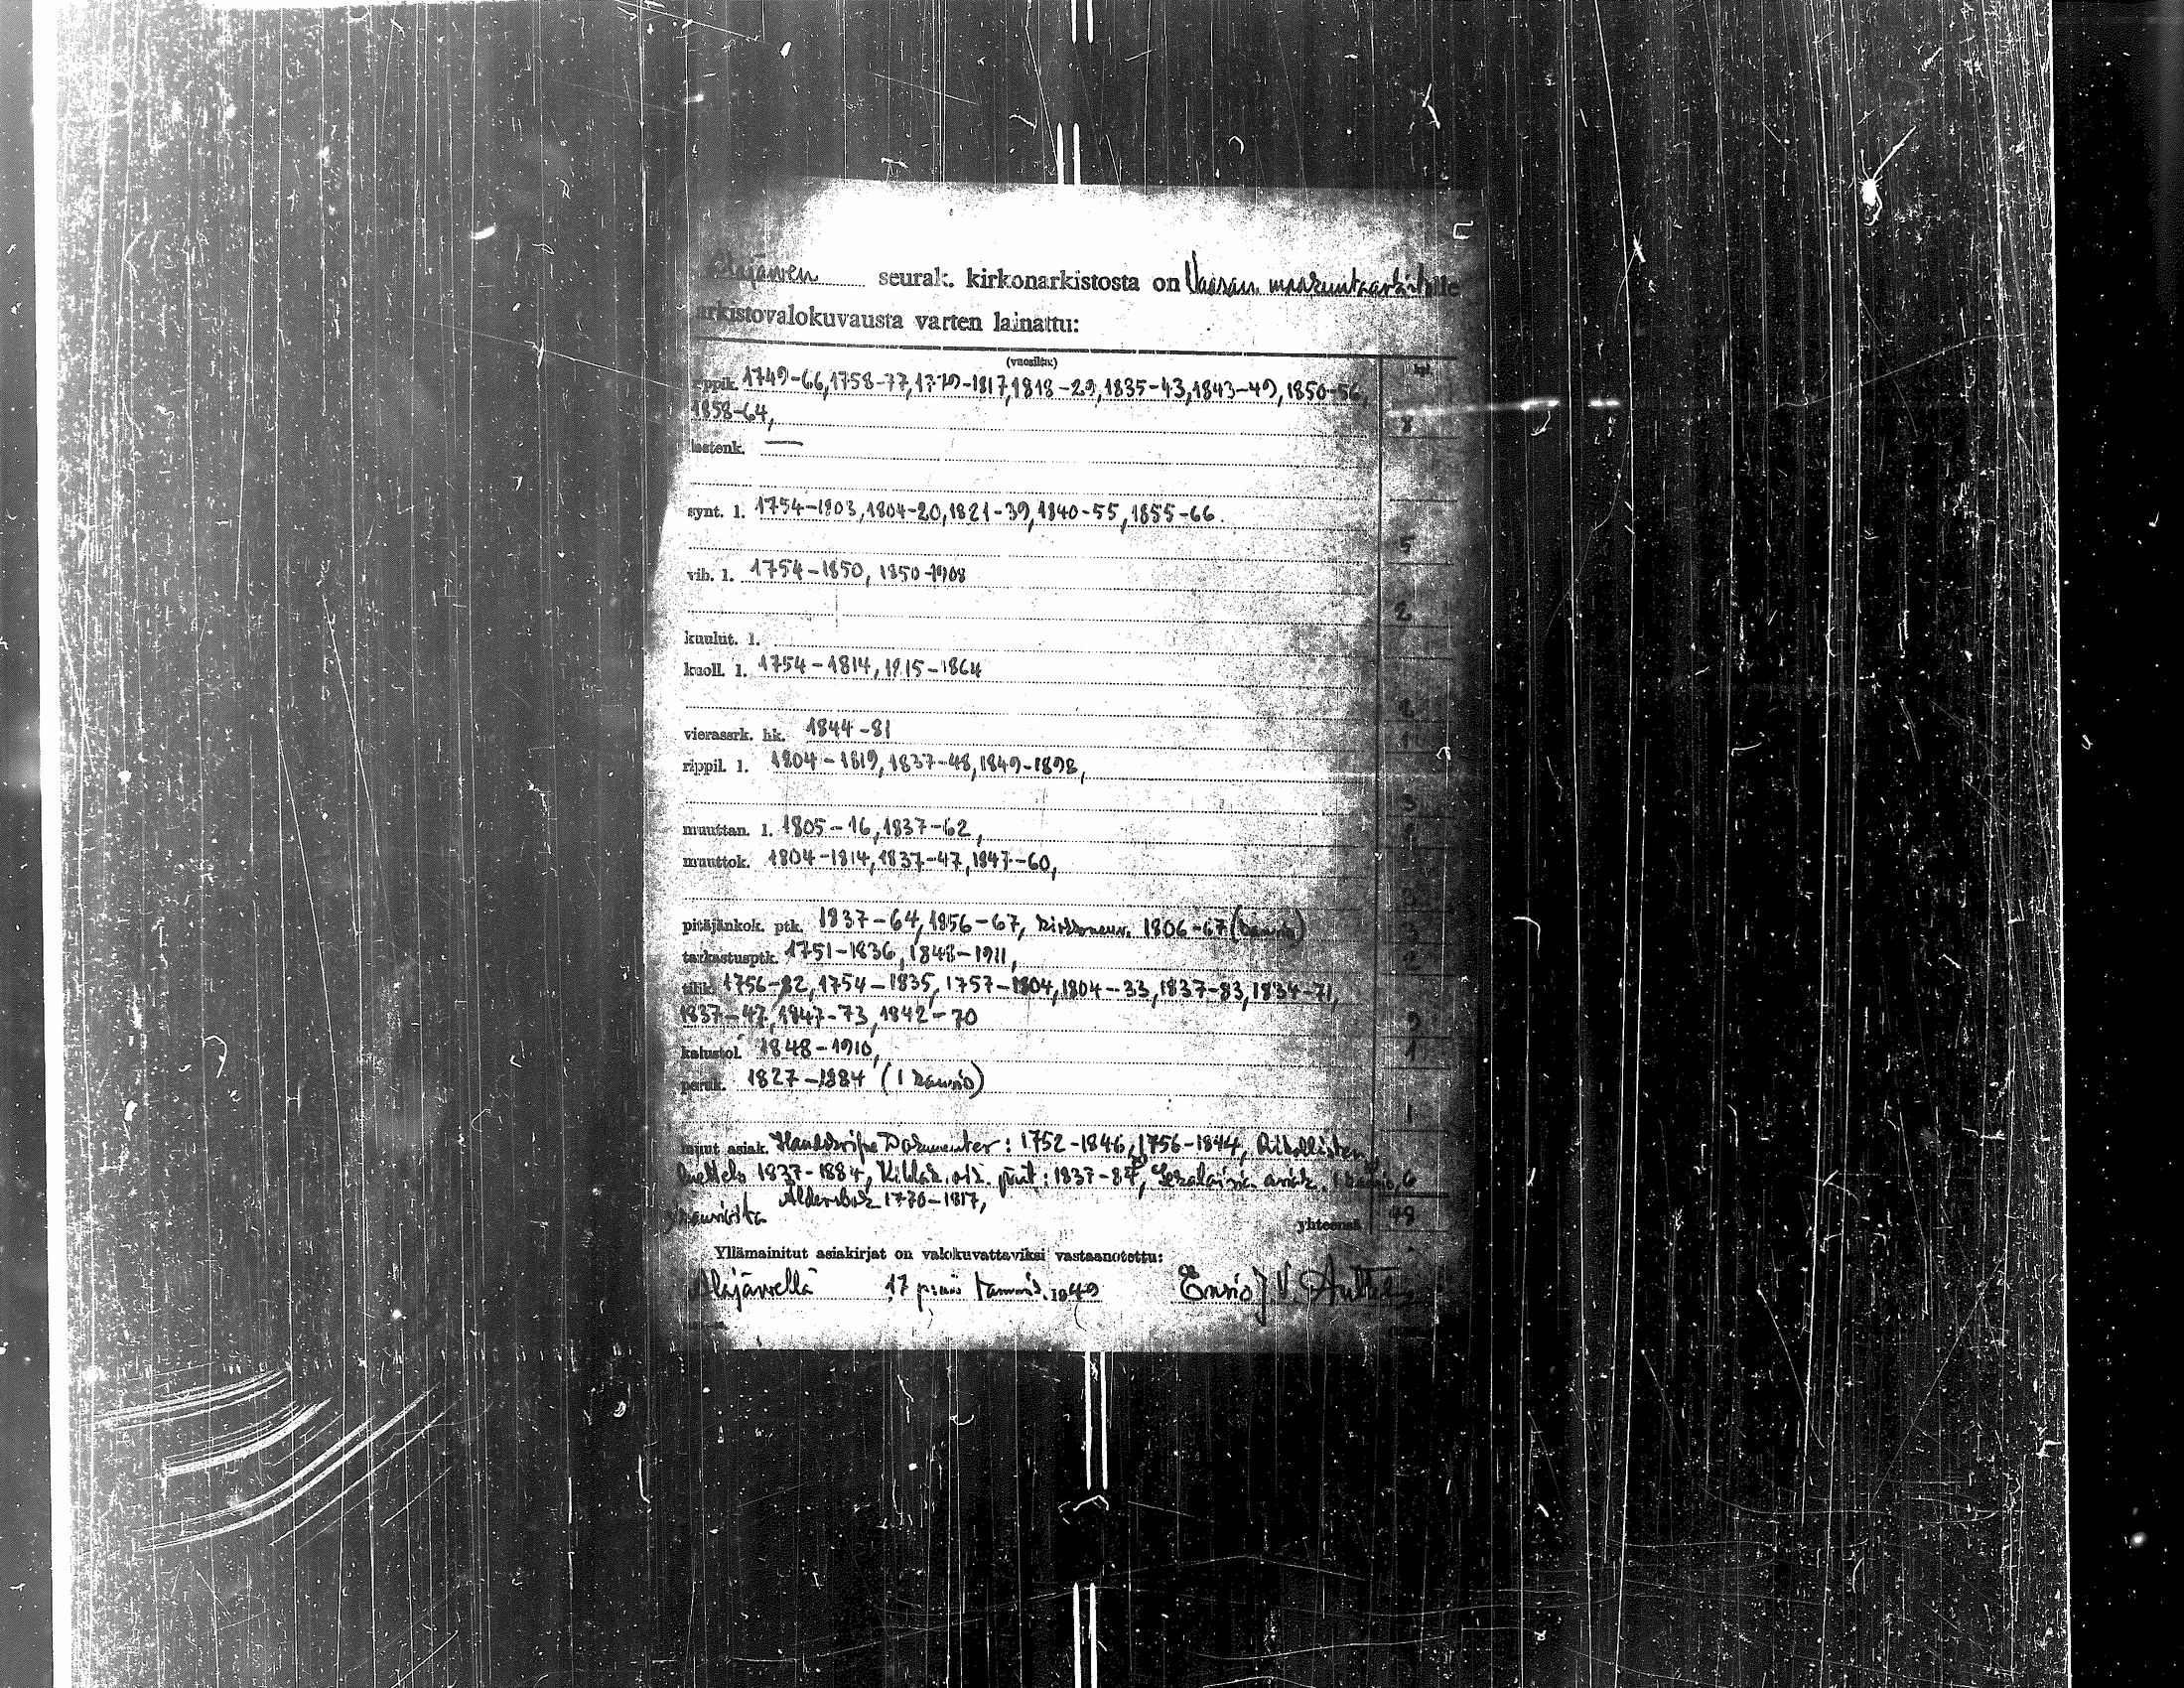 Alajärven seurak. kirkonarkistosta on Vaasan maakuntaarkistolle
arkistovalokuvausta varten lainattu:
(vuosilta:) kpl.
rippik. 1749-66, 1758-77, 1779-1817, 1818-29, 1835-43, 1843-49, 1850-56,
1858-64, 8
lastenk. —
synt. l. 1754-1803, 1804-20, 1821-39, 1840-55, 1855-66.
5
vih. l. 1754-1850, 1850-1908
2
kuulut. l.
kuoll. l. 1754-1814, 1815-1864
2
vierassrk. hk. 1844-81 1
rippil. l. 1804-1819, 1837-48, 1849-1898,
3
muuttan. l. 1805-16, 1837-62,
muuttok. 1804-1814, 1837-47, 1847-60,
3
pitäjänkok. ptk. 1837-64, 1856-67, 1806-67 3
tarkastusptk. 1751-1836, 1848-1911, 2
tilik. 1756-82, 1754-1835, 1757-1804, 1804-33, 1837-83, 1834-71,
1837-47, 1847-73, 1842-70 9
kalustol. 1848-1910, 1
peruk. 1827-1884 (1 kansio)
1
muut asiak. Dokumenter: 1752-1846, 1756-1844,
luettelo 1837-1884, 1837-87, Sekalaisia asiak. 6
Åldersbok 1770-1817,
yhteensä 48
Yllämainitut asiakirjat on valokuvattaviksi vastaanotettu:
Alajärvellä 17 p:nä tammik. 1949 Ensio J V. Anttel